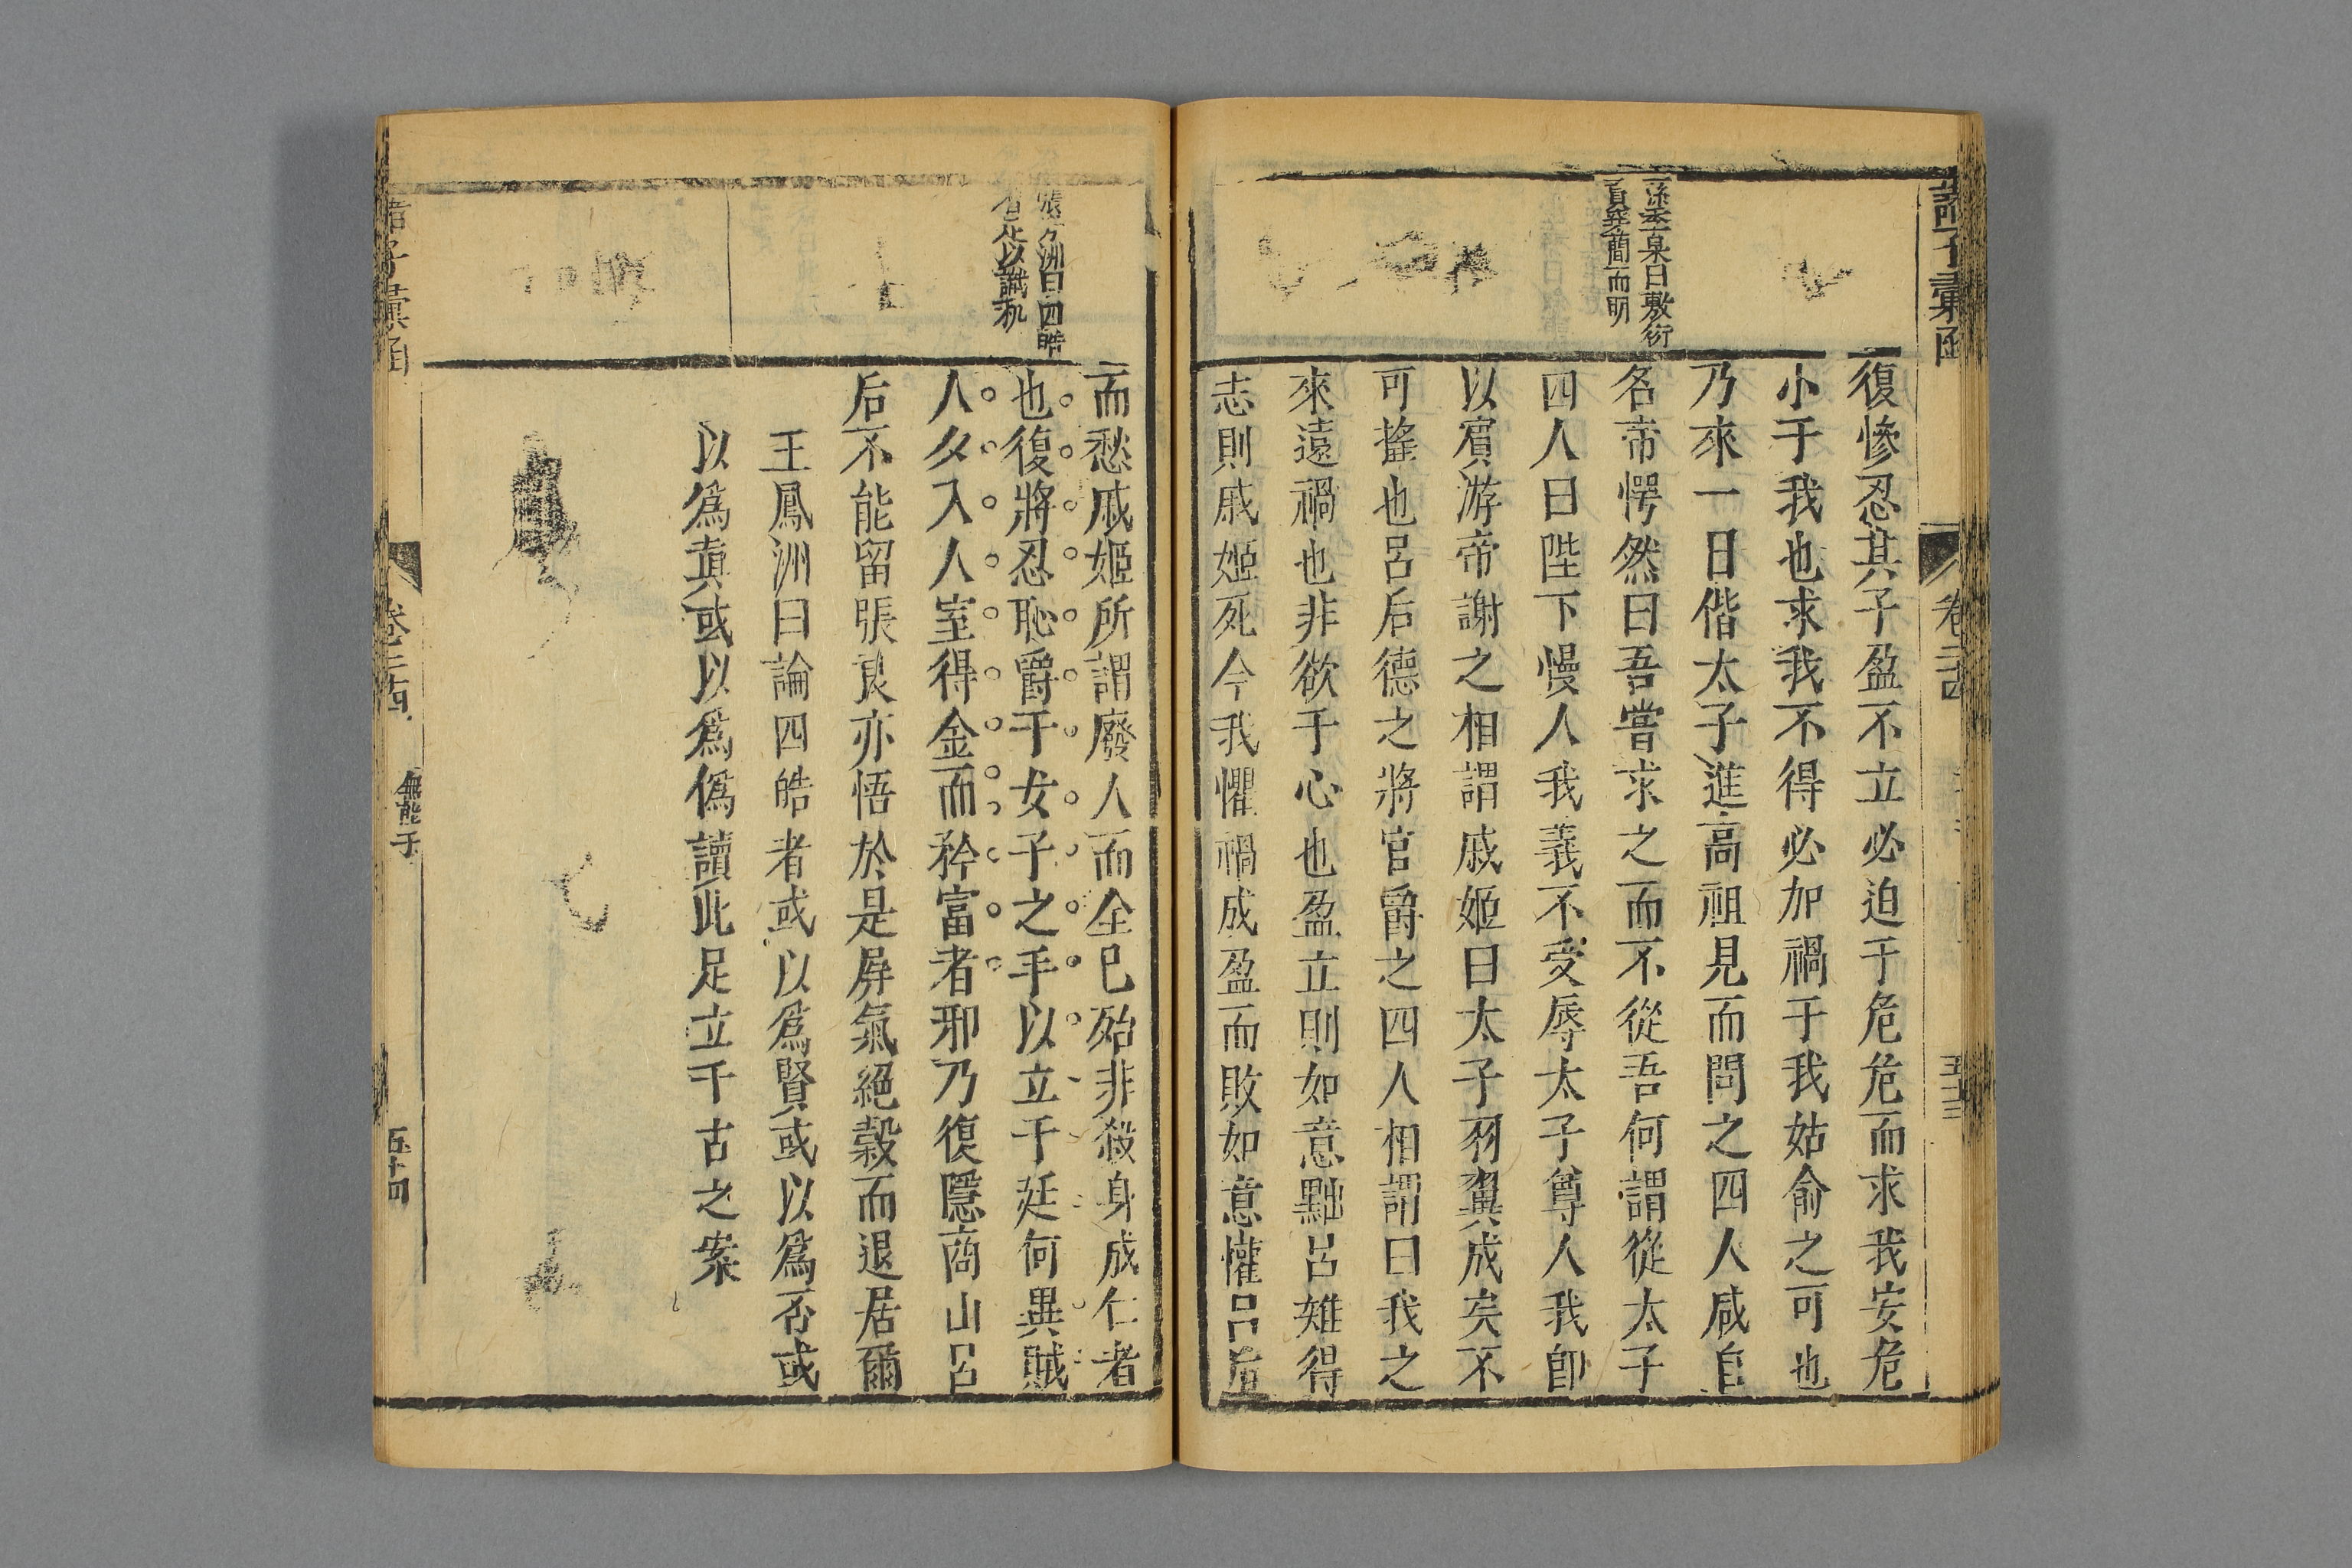 諸子彙函
卷二十四
五十三
孫季泉曰敷衍
簡而明
復慘忍其子盈不立必迫于危危而求我安危
小于我也求我不得必加禍于我姑俞之可也
乃來一日偕太子進高祖見而問之四人咸自
名帝愕然曰吾嘗求之而不從吾何謂從太子
四人曰陛下慢人我義不受辱太子尊人我卽
以賓游帝謝之相謂戚姬曰太子羽翼成矣不
可搖也呂后德之將官爵之四人相謂曰我之
來遠禍也非欲于心也盈立則如意黜呂雉得
志則戚姬死今我懼禍成盈而敗如意懽呂后
洲曰四皓
以誠
而愁戚姬所謂廢人而全已殆非殺身成仁者
也復將忍恥爵于女子之手以立于廷何異賊
人夕入人室得金而矜富者邪乃復隱商山呂
后不能留張良亦悟於是屏氣絕榖而退居爾
王鳳洲曰論四皓者或以爲賢或以爲否或
以爲真或以爲僞讀此足立千古之案
諸子彙函
卷二十四
無能子
五十四